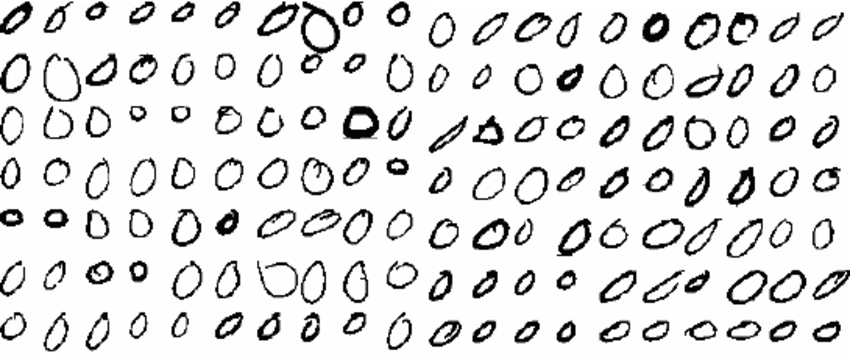 0 0 0 0 0 0 0 0 0 0 0 0 0 0 0 0 0 0 0 0
0 0 0 0 0 0 0 0 0 0 0 0 0 0 0 0 0 0 0 0
0 0 0 0 0 0 0 0 0 0 0 0 0 0 0 0 0 0 0 0
0 0 0 0 0 0 0 0 0 0 0 0 0 0 0 0 0 0 0 0
0 0 0 0 0 0 0 0 0 0 0 0 0 0 0 0 0 0 0 0
0 0 0 0 0 0 0 0 0 0 0 0 0 0 0 0 0 0 0 0
0 0 0 0 0 0 0 0 0 0 0 0 0 0 0 0 0 0 0 0